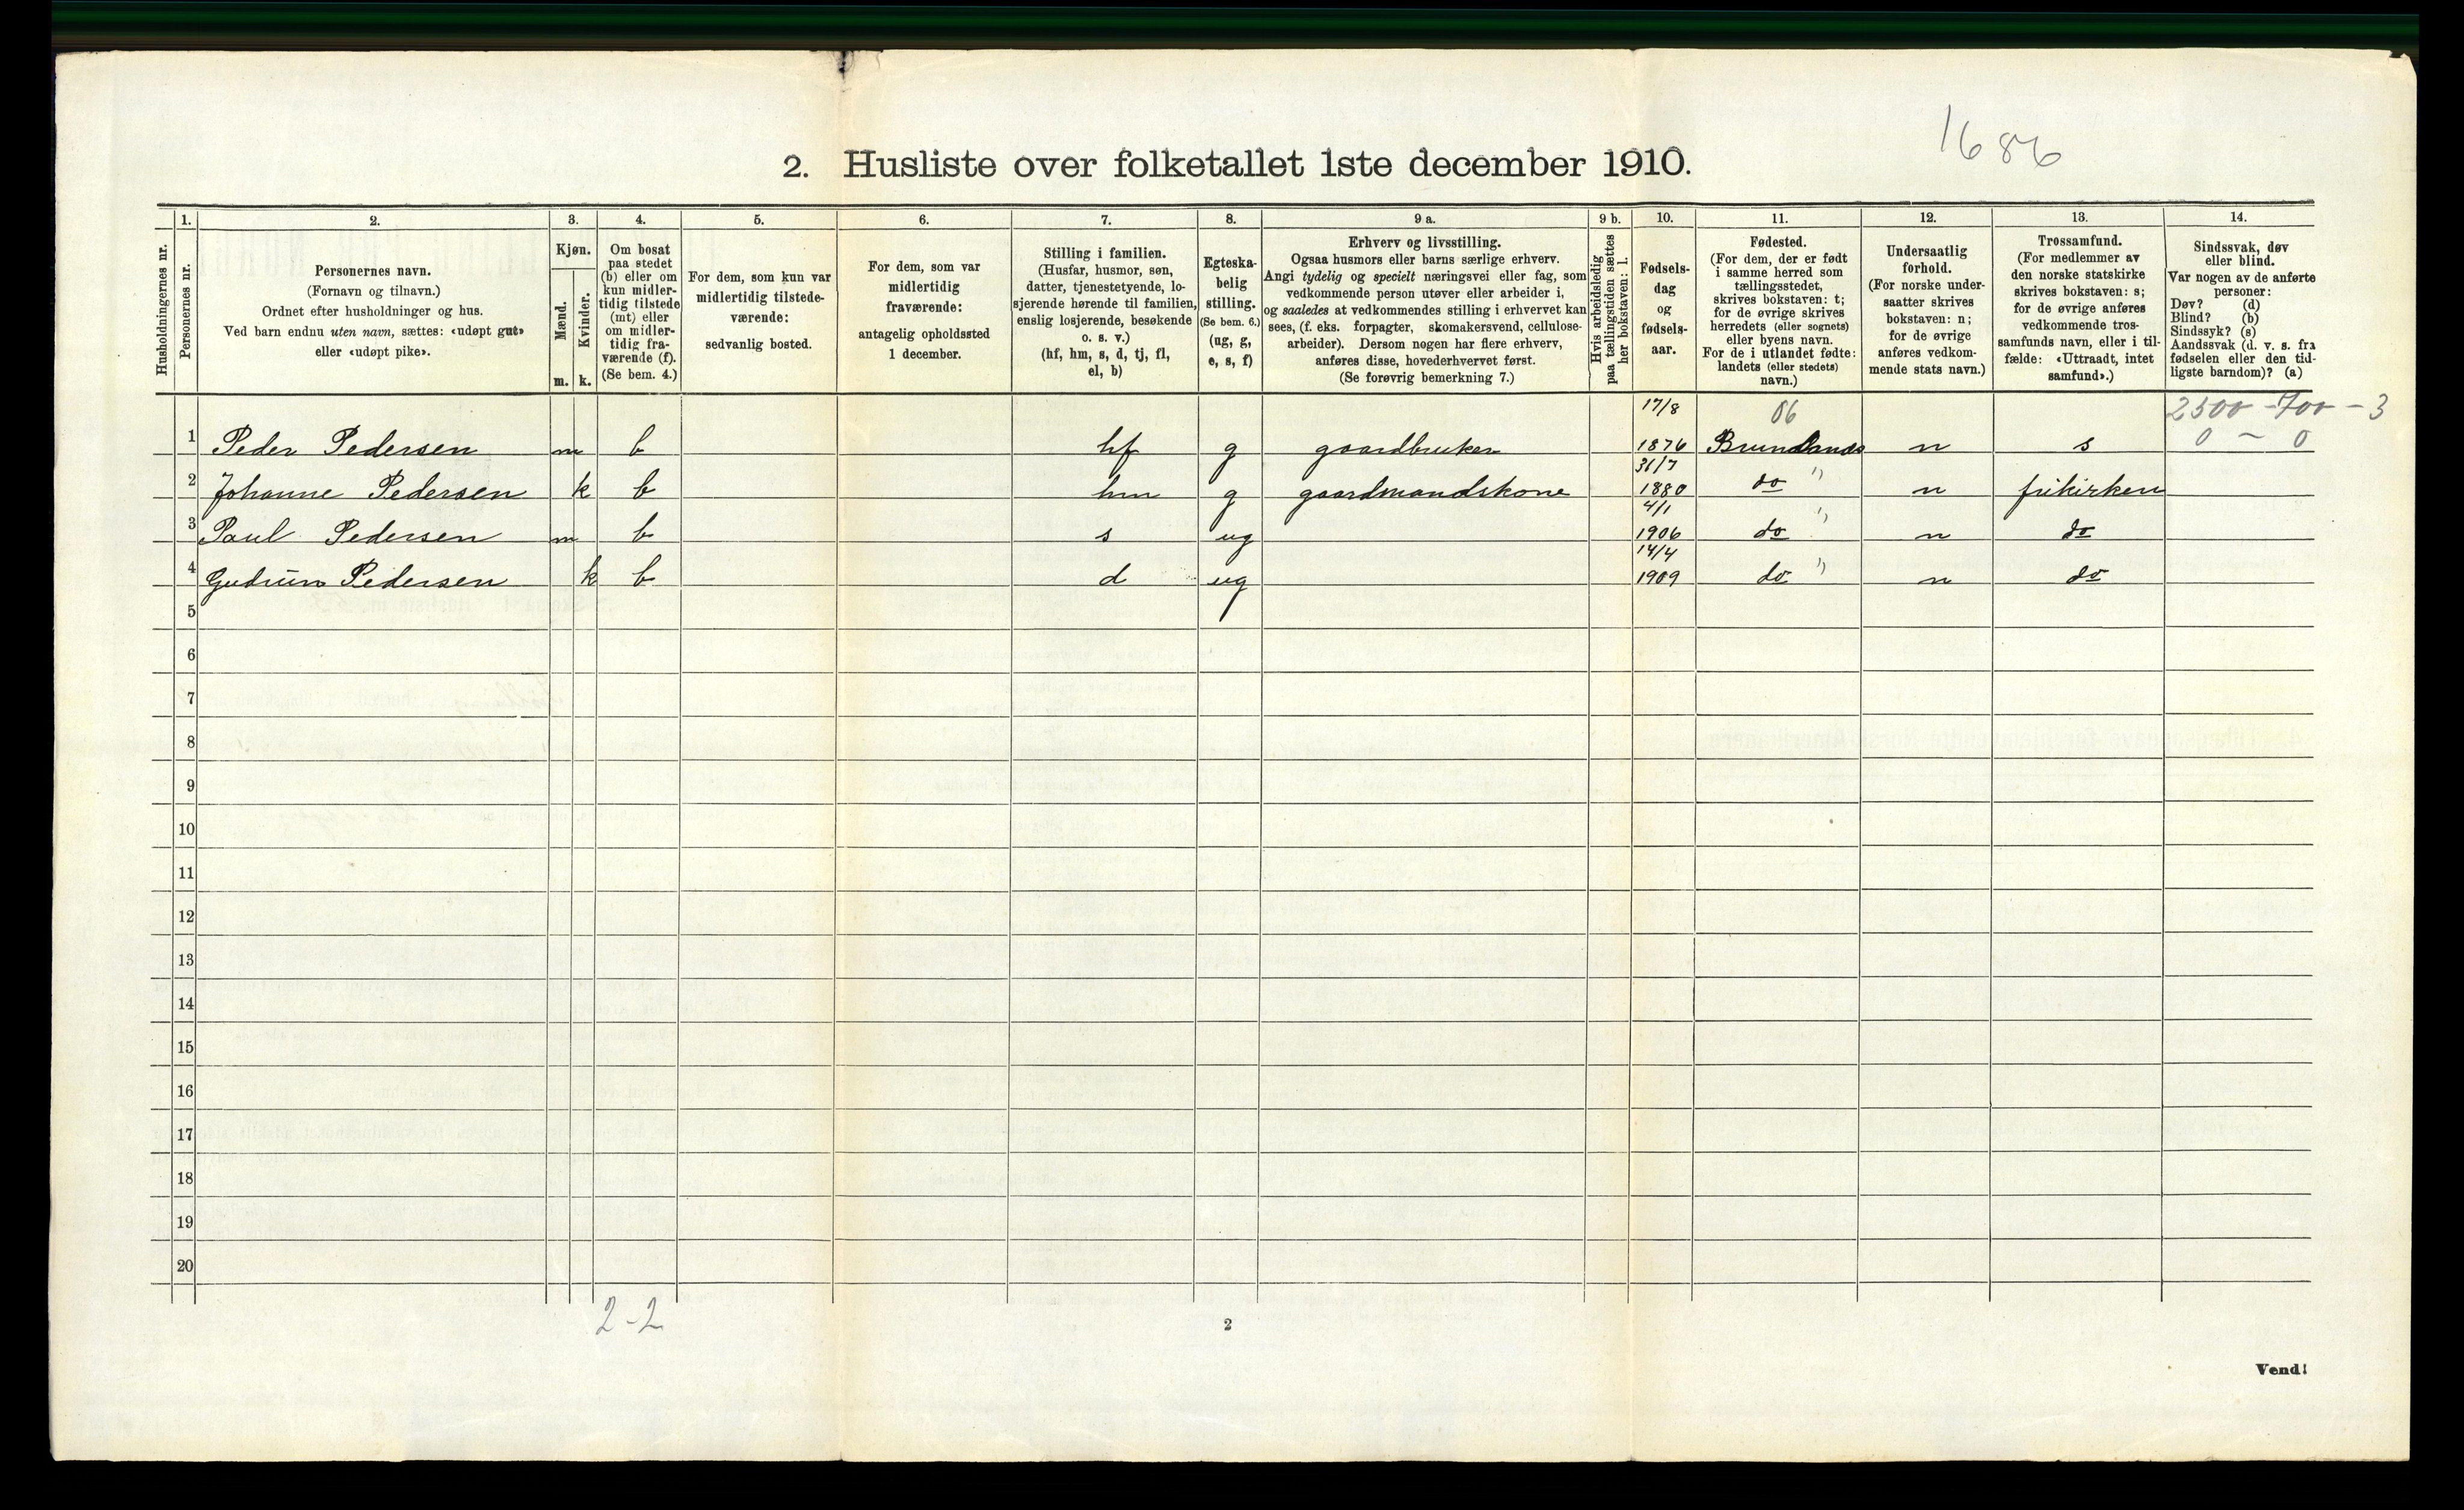 1686
2. Husliste over folketallet 1ste december 1910.
Husholdningernes nr.
1.
Personernes nr.
2.
Personernes navn.
(Fornavn og tilnavn.)
Ordnet efter husholdninger og hus.
Ved barn endnu uten navn, sættes: «udøpt gut»
eller «udøpt pike».
3.
Kjøn.
Mænd.
Kvinder.
m. k.
4.
Om bosat
paa stedet
(b) eller om
kun midler-
tidig tilstede
(mt) eller
om midler-
tidig fra-
værende (f).
(Se bem. 4.)
5.
For dem, som kun var
midlertidig tilstede-
værende:
sedvanlig bosted.
6.
For dem, som var
midlertidig
fraværende:
antagelig opholdssted
1 december.
7.
Stilling i familien.
(Husfar, husmor, søn,
datter, tjenestetyende, lo-
sjerende hørende til familien,
enslig losjerende, besøkende
o. s. v.)
(hf, hm, s, d, tj, fl,
el, b)
8.
Egteska-
belig
stilling.
(Se bem. 6.)
(ug, g,
e, s, f)
9 a.
Erhverv og livsstilling.
Ogsaa husmors eller barns særlige erhverv.
Angi tydelig og specielt næringsvei eller fag, som
vedkommende person utøver eller arbeider i,
og saaledes at vedkommendes stilling i erhvervet kan
sees, (f. eks. forpagter, skomakersvend, cellulose-
arbeider). Dersom nogen har flere erhverv,
anføres disse, hovederhvervet først.
(Se forøvrig bemerkning 7.)
9 b.
Hvis arbeidsledig
paa tællingstiden sættes
her bokstaven: l.
10.
Fødsels-
dag
og
fødsels-
aar.
11.
Fødested.
(For dem, der er født
i samme herred som
tællingsstedet,
skrives bokstaven: t;
for de øvrige skrives
herredets (eller sognets)
eller byens navn.
For de i utlandet fødte:
landets (eller stedets)
navn.)
12.
Undersaatlig
forhold.
(For norske under-
saatter skrives
bokstaven: n;
for de øvrige
anføres vedkom-
mende stats navn.)
13.
Trossamfund.
(For medlemmer av
den norske statskirke
skrives bokstaven: s;
for de øvrige anføres
vedkommende tros-
samfunds navn, eller i til-
fælde: «Uttraadt, intet
samfund».)
14.
Sindssvak, døv
eller blind.
Var nogen av de anførte
personer:
Døv? (d)
Blind? (b)
Sindssyk? (s)
Aandssvak (d. v. s. fra
fødselen eller den tid-
ligste barndom)? (a)
17/8 06 2500 - 700 - 3
1 Peder Pedersen m b hf g gaardbruker 1876 Brunlands n s 0 - 0
31/7
2 Johanne Pedersen k b hm g gaardmandskone 1880 do " n frikirken
4/1
3 Paul Pedersen m b s ug 1906 do " n do
14/4
4 Gudrun Pedersen k b d ug 1909 do " n do
5
6
7
8
9
10
11
12
13
14
15
16
17
18
19
20
2-2
2
Vend!